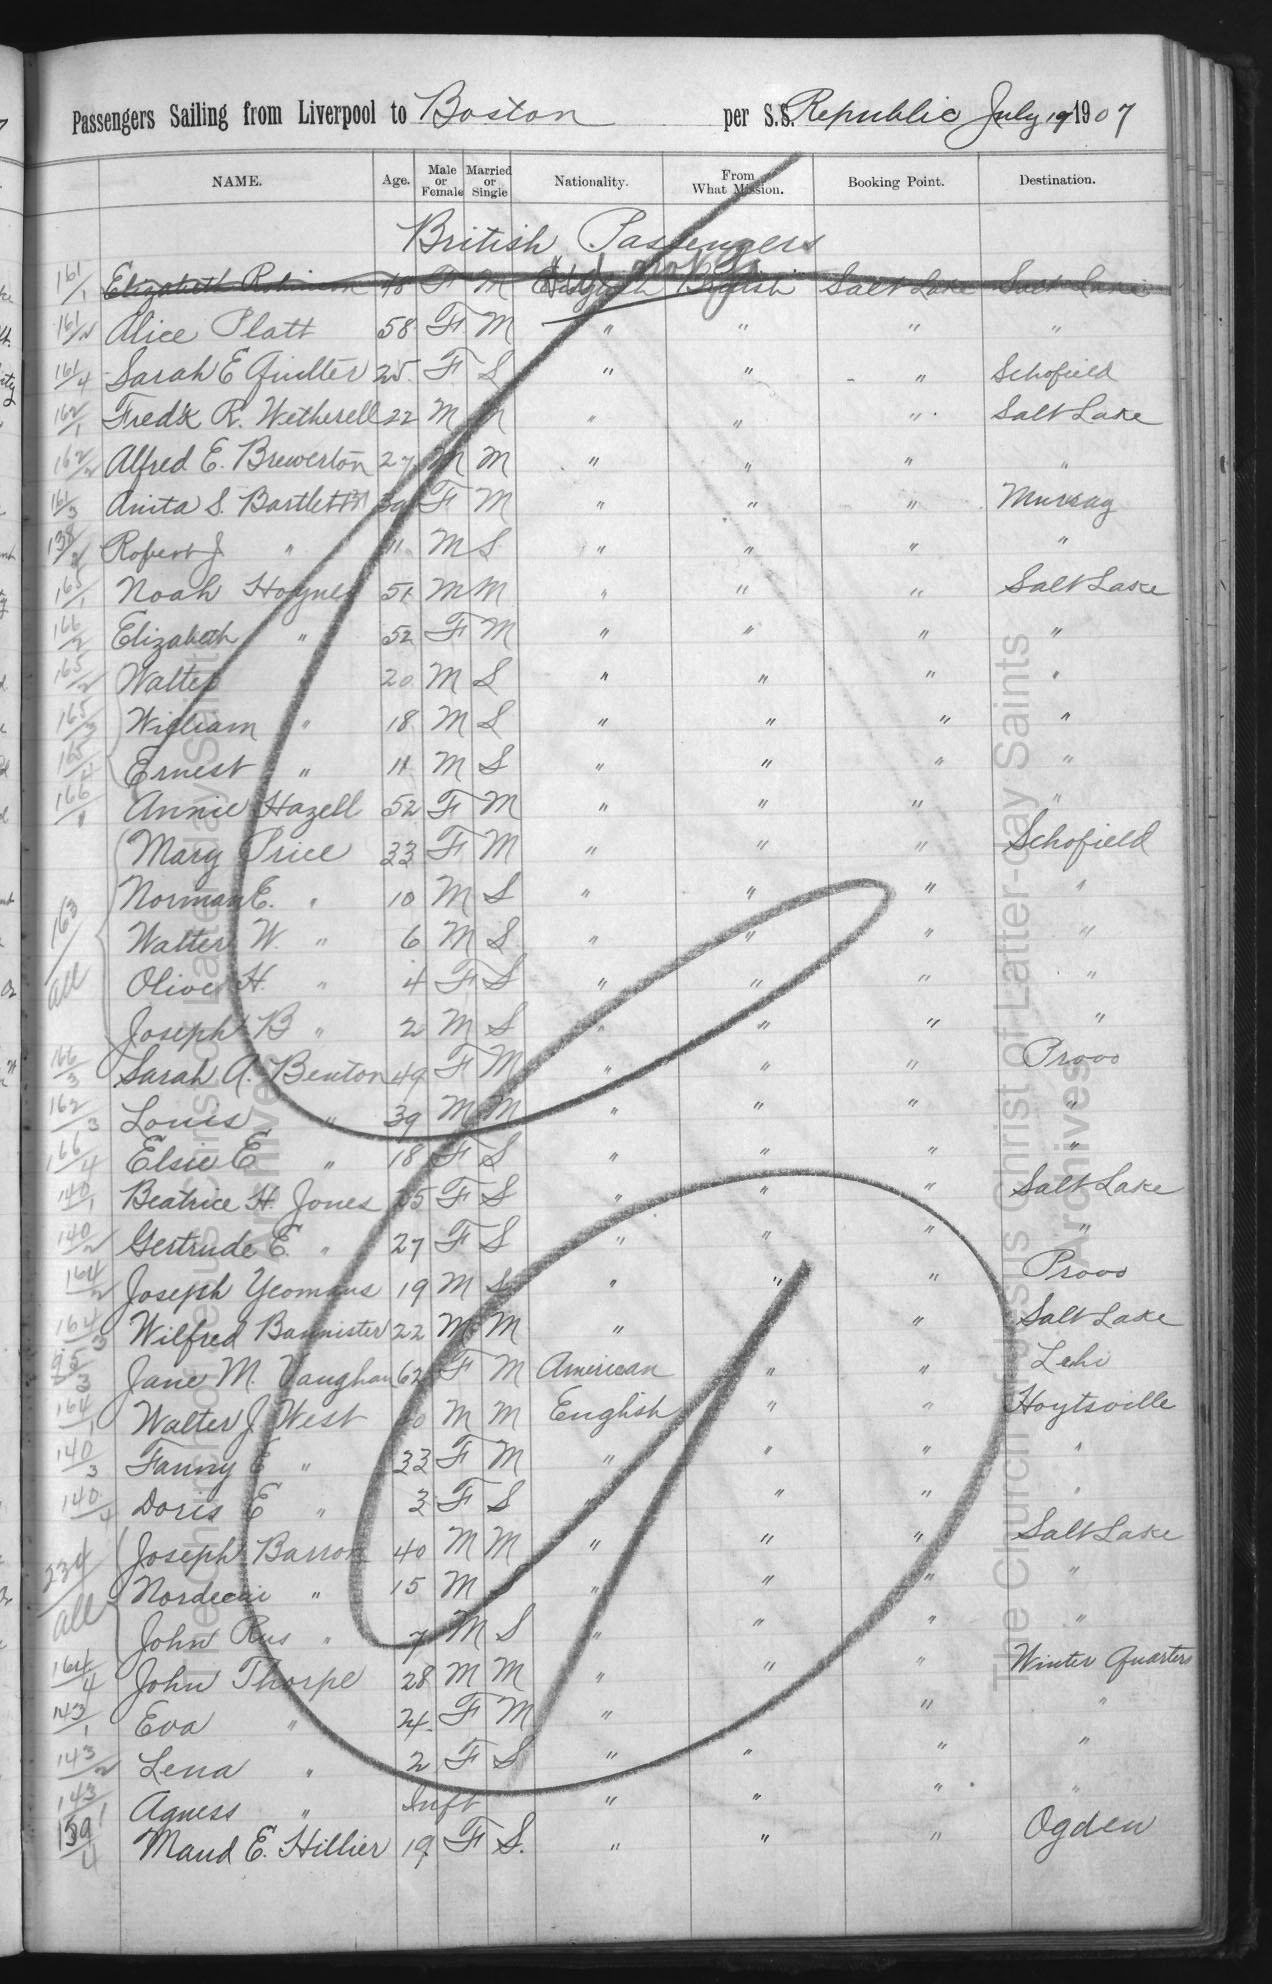 Passengers Sailing from Liverpool to Boston per S.S. Republic July 19 1907
NAME. Age. Male or Female Married or Single Nationality. From What Mission. Booking Point. Destination.
British Passengers
161/1 Elizabeth Robinson 48 F M English British Salt Lake Salt Lake
161/2 Alice Platt 58 F M " " " "
161/4 Sarah E Quilter 25 F S " " " Schofield
162/1 Fredk R. Wetherell 22 M M " " " Salt Lake
162/2 Alfred E. Brewerton 27 M M " " " "
161/3 Anita S. Bartlett 39 F M " " " Murray
138/2 Robert J " 11 M S " " " "
165/1 Noah Haynes 51 M M " " " Salt Lake
166/2 Elizabeth " 52 F M " " " "
165/2 Walter 20 M S " " " "
165/3 William " 18 M S " " " "
165/4 Ernest " 11 M S " " " "
166/1 Annie Hazell 52 F M " " " "
Mary Price 33 F M " " " Schofield
163/all Norman E. " 10 M S " " " "
Walter W. " 6 M S " " " "
Olive H. " 4 F S " " " "
Joseph B " 2 M S " " " "
166/3 Sarah A. Benton 49 F M " " " Provo
162/3 Louis " 39 M M " " " "
166/4 Elsie E " 18 F S " " " "
140/1 Beatrice H. Jones 25 F S " " " Salt Lake
140/2 Gertrude E. " 27 F S " " " "
164/2 Joseph Yeomans 19 M S " " " Provo
164/3 Wilfred Bannister 22 M M " " " Salt Lake
95/3 Jane M. Vaughan 62 F M American " " Lehi
164/1 Walter J West 40 M M English " " Hoytsville
140/3 Fanny E " 33 F M " " " "
140/4 Doris E " 3 F S " " " "
Joseph Barron 40 M M " " " Salt Lake
234/all Nordecai " 15 M S " " " "
John Rus " 7 M S " " " "
164/4 John Thorpe 28 M M " " " Winter Quarters
143/1 Eva " 24 F M " " "
143/2 Lena " 2 F S " " " "
143/ Agness " Inft " " " "
139/4 Maud E. Hillier 19 F S. " " " Ogden
The Church of Jesus Christ of Latter-day Saints
Archives
The Church of Jesus Christ of Latter-day Saints
Archives